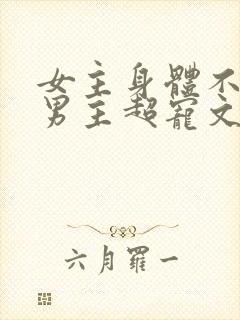 女主身體不
男主超寵文
六月羅一